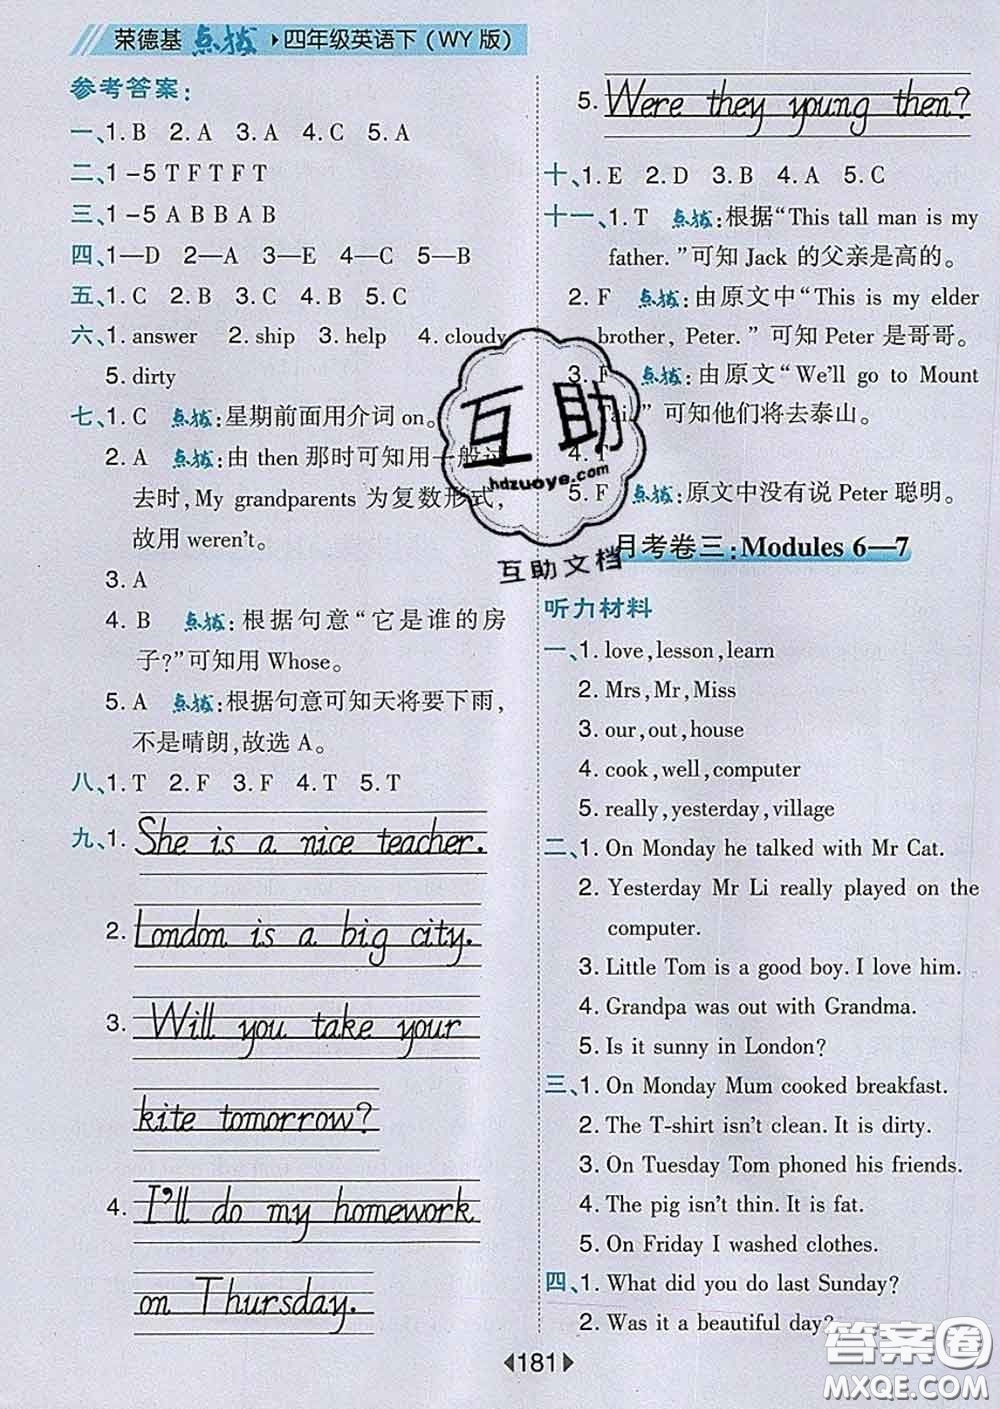 荣德基 点拨 四年级英语下(WY版)
参考答案:
一、1. B 2. A 3. A 4. C 5. A
二、1-5 T F T F T
三、1-5 A B B A B
四、1—D 2—A 3—E 4—C 5—B
五、1. C 2. B 3. C 4. B 5. C
六、1. answer 2. ship 3. help 4. cloudy
5. dirty
七、1. C 点拨:星期前面用介词on。
2. A 点拨:由 then 那时可知用一般过
去时,My grandparents 为复数形式,
故用 weren't。
3. A
4. B 点拨:根据句意“它是谁的房
子?”可知用 Whose。
5. A 点拨:根据句意可知天将要下雨,
不是晴朗,故选 A。
八、1. T 2. F 3. F 4. T 5. T
九、1. She is a nice teacher.
2. London is a big city.
3. Will you take your
kite tomorrow?
4. I'll do my homework
on Thursday.
5. Were they young then?
十、1. E 2. D 3. B 4. A 5. C
十一、1. T 点拨:根据“This tall man is my
father.”可知 Jack 的父亲是高的。
2. F 点拨:由原文中“This is my elder
brother, Peter.”可知 Peter 是哥哥。
3. F 点拨:由原文“We'll go to Mount
Tai.”可知他们将去泰山。
4. T
5. F 点拨:原文中没有说 Peter 聪明。
月考卷三:Modules 6—7
听力材料
一、1. love,lesson,learn
2. Mrs,Mr,Miss
3. our,out,house
4. cook,well,computer
5. really,yesterday,village
二、1. On Monday he talked with Mr Cat.
2. Yesterday Mr Li really played on the
computer.
3. Little Tom is a good boy. I love him.
4. Grandpa was out with Grandma.
5. Is it sunny in London?
三、1. On Monday Mum cooked breakfast.
2. The T-shirt isn't clean. It is dirty.
3. On Tuesday Tom phoned his friends.
4. The pig isn't thin. It is fat.
5. On Friday I washed clothes.
四、1. What did you do last Sunday?
2. Was it a beautiful day?
181
互助
hdzuoye.com
互助文档
答案圈
MXQE.COM